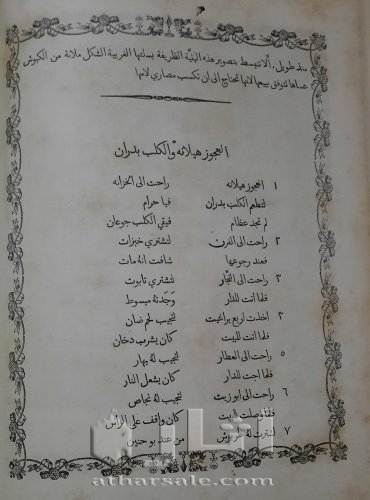 منذ طويل. ألا تنبسط بتصوير هذه البنيّة الظريفة بسلتها الغريبة الشكل ملانة من الكبوش
عساها تتوفق ببيعها لانها تحتاج الى ان تكسب مصاري لامها
العجوز هيلانه والكلب بدران
١ العجوز هيلانه راحت الى الخزانه
لتطعم الكلب بدران فيا حرام
لم تجد عظام فبقي الكلب جوعان
٢ راحت الى الفرن لتشتري خبزات
فعند رجوعها شافت انهُ مات
٣ راحت الى النجّار لتشتري تابوت
فلما اتت للدار وَجَدتهُ مبسوط
٣ اخذت اربع براغيث لتجيب لحم ضان
فلما اتت للبيت كان يشرب دخان
٥ راحت الى العطار لتجيب لهُ بهار
فلما اجت للدار كان يشعل النار
٦ راحت الى ابو زيث لتجيب لهُ نجاص
فلما وصلت للبيت كان واقف على الراس
٧ اشترت لهُ من عند بو حنين
اثار
atharsale.com